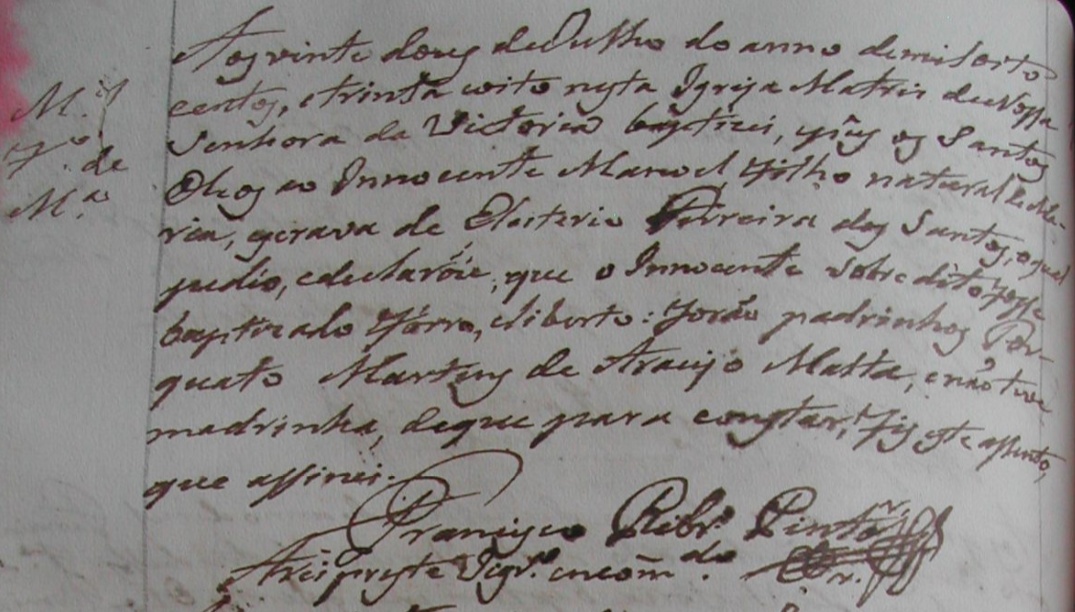 Aos vinte dous de Julho do anno de mil oito
M.el centos, e trinta e oito nesta Igreja Matris de Nossa
Senhora da Victoria baptizei, e pus os Santos
f.o de Oleos ao Innocente Manoel filho natural de Ma-
M.a ria, escrava de Eleiterio Ferreira dos Santos, o qual
pedio, e declarou, que o Innocente sobredito fosse
baptizado forro, e liberto: forão padrinhos Tor-
quato Martins de Araujo Matta, e não teve
madrinha, de que para constar, fis este assento,
que assinei.
Francisco Ribr.o Pinto
Arcipreste Vigr.o encom.do